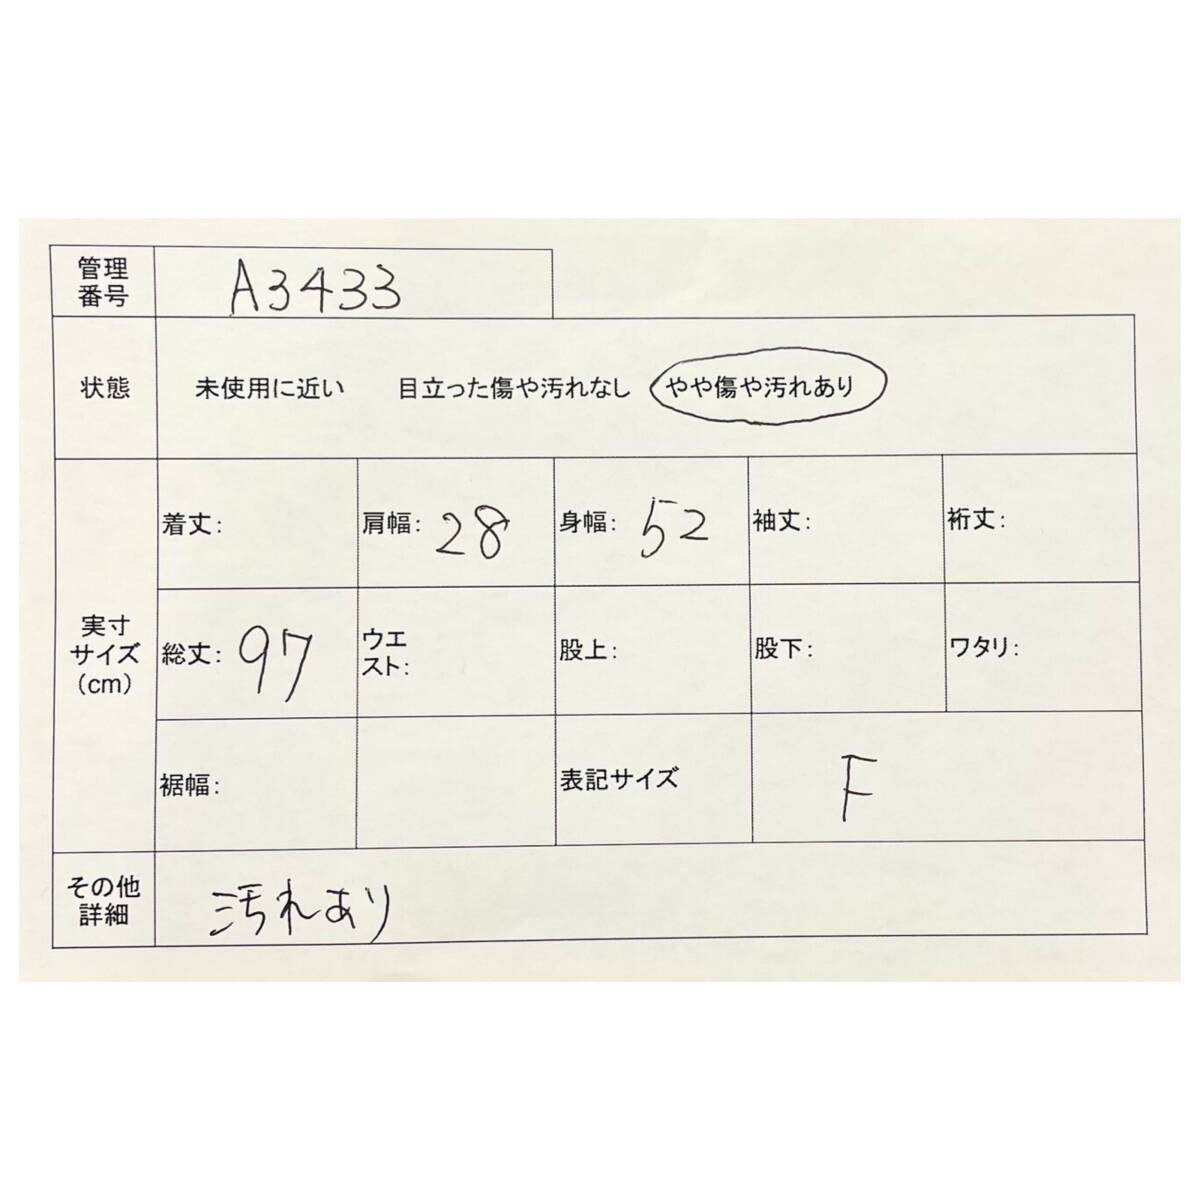 管理
番号
A3433
状態
未使用に近い 目立った傷や汚れなし やや傷や汚れあり
実寸
サイズ
(cm)
着丈:
肩幅: 28
身幅: 52
袖丈:
裄丈:
総丈: 97
ウエ
スト:
股上:
股下:
ワタリ:
裾幅:
表記サイズ
F
その他
詳細
汚れあり